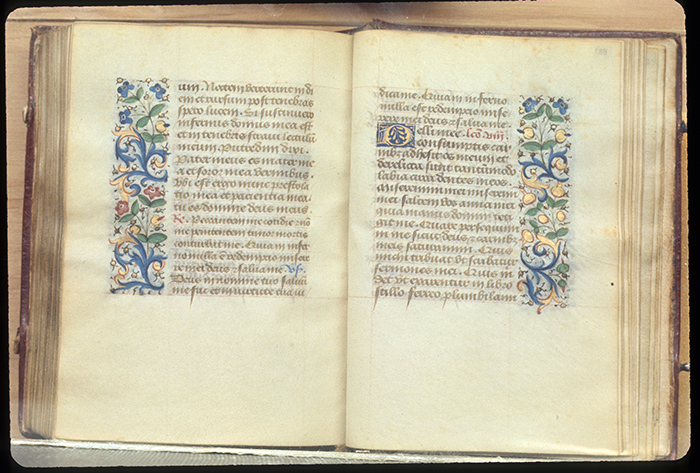 um. Noctem verterunt in di
em et rursum post tenebras
spero lucem. Si sustinuero
infernus domus mea est
et in tenebris stravi lectulũ
meum. Putredini dixi.
Pater meus es mater me
a et soror mea vermibus.
Vbi est ergo nunc prestola
tio mea et pacientia mea
tu es domine deus meus.
R. Peccantem me cotidie: nõ
me penitentem timor mortis
conturbat me. Quia in infer
no nulla ẽ redemptio misere
re mei deus & salva me. vs.
Deus in nomine tuo salvũ
me fac et in virtute tua iu
dica me. Quia in inferno
nulla est redemptio mise
rere mei deus & salva me.
Pelli mee. lec̃o viii.
consumptis car
nibꝫ adhesit os meum et
derelicta sunt tantũmodo
labia circa dentes meos.
miseremini mei miseremi
mei saltem vos amici mei
quia manus domini teti
git me. Quare persequim
me sicut deus & carnibꝫ
meis saturamini. Quis
michi tribuat ut scribãtur
sermones mei. Quis m
det ut exarentur in libro
stillo ferreo plumbi lami